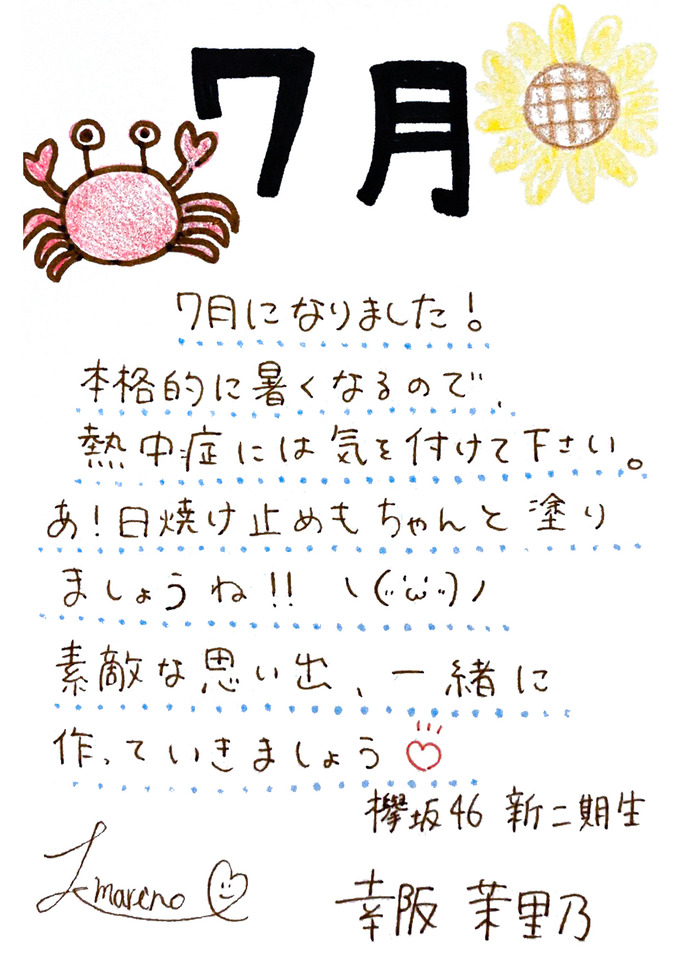 7月
7月になりました!。
本格的に暑くなるので、
熱中症には気を付けて下さい。
あ!日焼け止めもちゃんと塗り
ましょうね!! \(¨̮ω¨̮)ノ
素敵な思い出、一緒に
作っていきましょう♡
欅坂46 新二期生
幸阪 茉里乃
marino